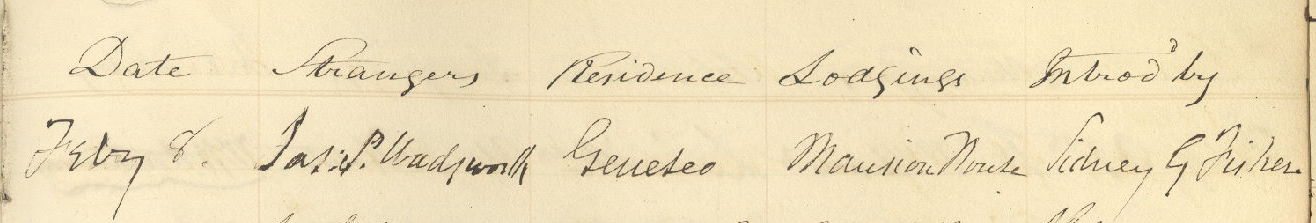 Date Strangers Residence Lodgings Introd by
Feby 8. Jas. S. Wadsworth Geneseo Mansion House Sidney G Fisher